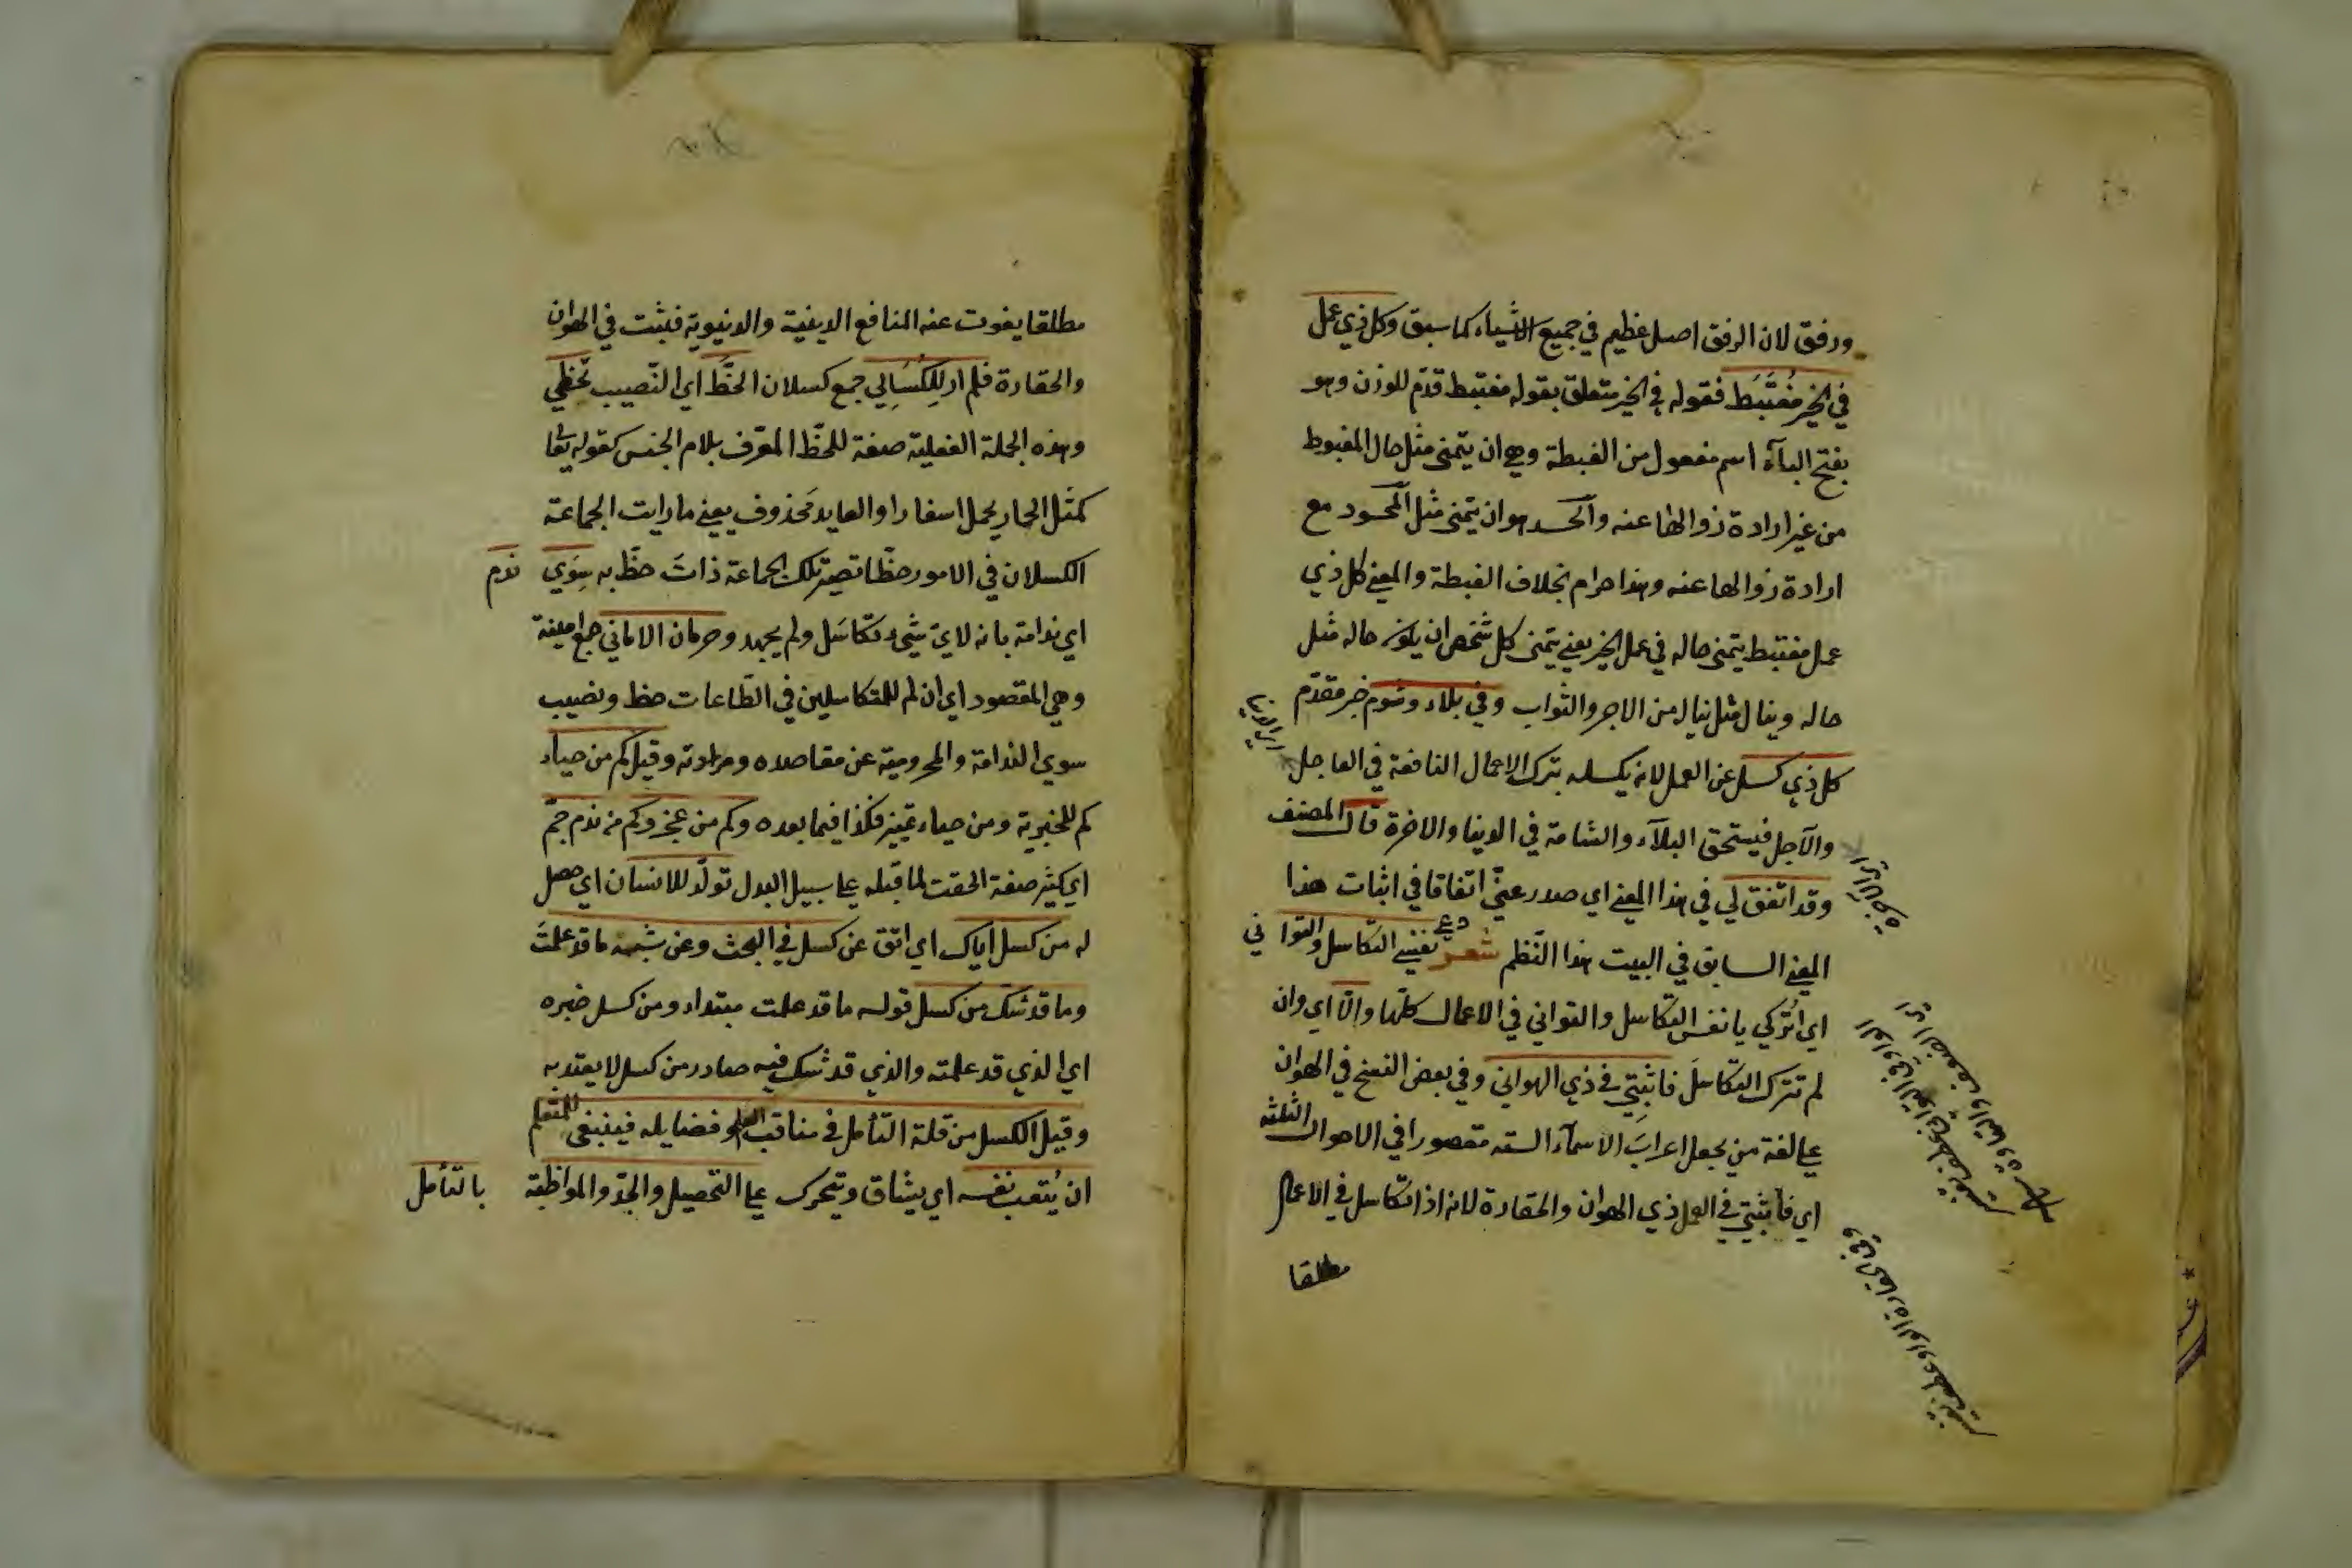 ورفق لان الرفق اصل عظيم في جميع الاشياء كما سبق وكل ذي عمل
في الخير مُغْتَبَط فقوله في الخير متعلق بقوله مغتبط قدّم للوزن وهو
بفتح الباء اسم مفعول من الغبطة وهي ان يتمنى مثل حال المغبوط
من غير ارادة زوالها عنه والحسد هو ان يتمنى مثل المحسود مع
ارادة زوالها عنه وهذا حرام بخلاف الغبطة والمعنى كل ذي
عمل مغتبط يتمنى حاله في عمل الخير يعني يتمنى كل شخص ان يكون حاله مثل
حاله وينال مثل نياله من الاجر والثواب وفي بلاء وشوم خبر مقدّم
كل ذي كسل عن العمل لانه يكسله بترك الاعمال النافعة في العاجل
والآجل فيستحق البلآء والشامة في الدنيا والاخرة قال المصنف
وقد اتفق لي في هذا المعنى اي صدر عنّي اتفاقا في اثبات هذا
المعنى السابق في البيت هذا النّظم شعر دعي نفسي التكاسل والتواني
اي اُترُكي يا نفس التكاسل والتواني في الاعمال كلّها والّا اي وان
لم تترك التكاسلَ فاثبِتِي في ذي الهواني وفي بعض النسخ في الهوان
على لغة من يجعل اعرابَ الاسمآء السته مقصورا في الاحوال الثلثه
اي فاثبتي في العمل ذي الهوان والحقارة لانه اذا تكاسل في الاعمال
مطلقا
وفي الحقارة الواو عطف تفسير
مطلقا يفوت عنه المنافع الدينية والدنيوية فيثبت في الهوان
والحقارة فلم ار للِكُسَالي جمع كسلان الحَظَّ اي النّصيب تحظي
وهذه الجملة الفعلية صفة للحظّ المعّرف بلام الجنس كقوله تعالى
كمثل الحمار يحمل اسفارا والعايد محَذوف يعني ما رايت الجماعة
الكسلان في الامور حظّا تصير تلك الجماعة ذاتَ حظّ به سِوَي ندم
اي ندامة بانه لايّ شيء تكاسَل ولم يجهد وحرمان الاماني جمع امنية
وهي المقصود اي ان لم للمتكاسلين في الطّاعات حظ ونصيب
سوي الندامة والمحرومية عن مقاصده ومراداته وقيل كم من حياء
كم للخبرية ومن حياء تمييز فكذا فيما بعده وكم من عجز وكم من ندم جمّ
اي كثير صفة الحقت لما قبله على سبيل البدل تولّد للانسان اي حصل
له من كسل اياك اي اتق عن كسل في البحث وعن شبهه ما قد علمتَ
وما قد شك من كسل قوله ما قد علمت مبتداء ومن كسل خبره
اي الذي قد علمته والذي قد شك فيه صادر من كسل لا يعتد به
وقيل الكسل من قلة التأمل في مناقب العلم وفضايله فينبغي للمتعلم
ان يُتعب نفسه اي يشاق ويتحرك على التحصيل والجدّ والمواظبة بالتأمل